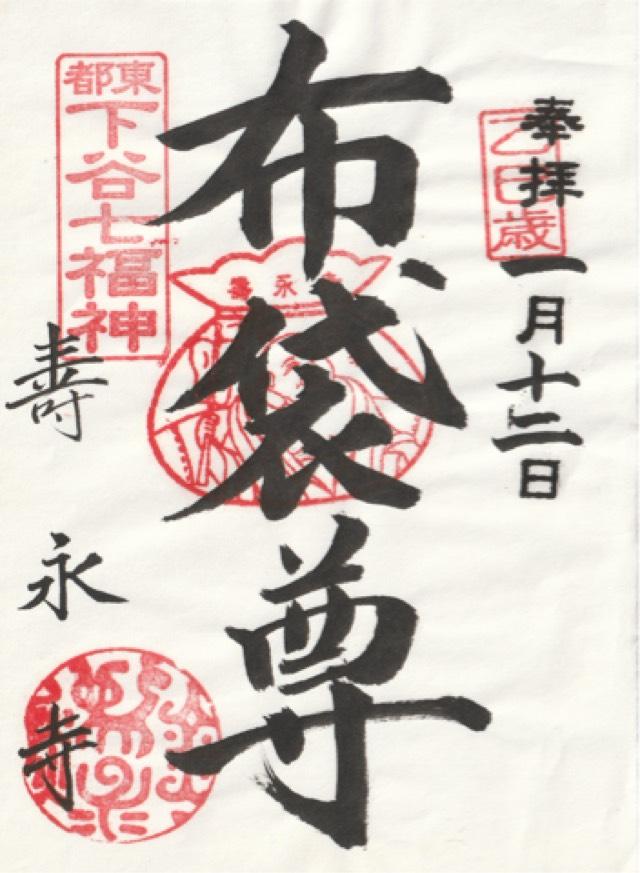 奉拝
乙巳歳
一月十二日
布袋尊
寺永壽
東都
下谷七福神
壽永寺